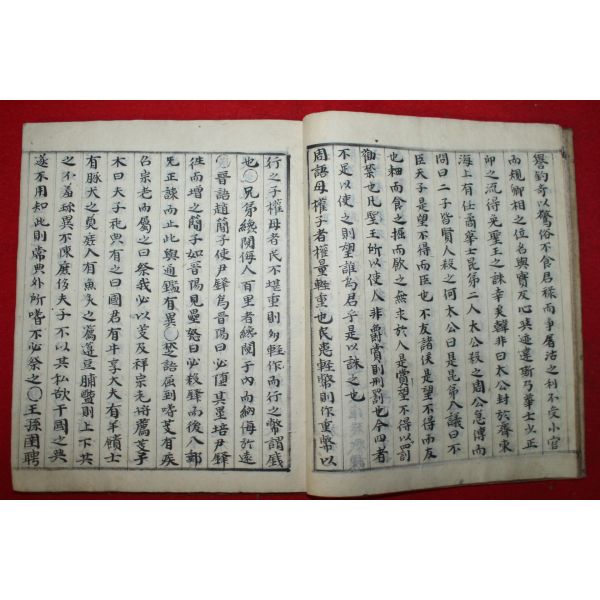 譽釣奇以驚俗不食君祿而爭屠沽之利不受小官
而規卿相之位名與實反心與迹違斯乃華士少正
卯之流得免聖王之誅幸矣韓非曰太公封於齊東
海上有任矞華士昆弟二人太公殺之周公急傳而
問曰二子皆賢人殺之何太公曰是昆弟議曰不
臣天子是望不得而臣也不友諸侯是望不得而友
也耕而食之掘而飲之無求於人是賞望不得以罰
勸禁也且聖王所以使人非爵賞則刑罰也今四者
不足以使之則望誰為君乎是以誅之也
周語母權子者權量輕重也民患輕幣則作重幣以
行之子權母者民不堪重則多輕作而行之幣謂錢
也○兄弟鬩侮人百里者鬩于內而納侮於遠
晉語趙簡子使尹鐸為晉陽曰必墮其壘培尹鐸
往而增之簡子如晉陽見壘怒曰必殺鐸而後入郵
无正諫而止此與通鑑有異○楚語屈到嗜芰有疾
召宗老而屬之曰祭我必以芰及祥宗老將薦芰子
木曰夫子祀典有之曰國君有牛享大夫有羊饋士
有豚犬之奠庶人有魚炙之薦籩豆脯醢則上下共
之不羞珍異不陳庶侈夫子不以其私欲干國之典
遂不用知此則常典外所嗜不必祭之○王孫圉聘